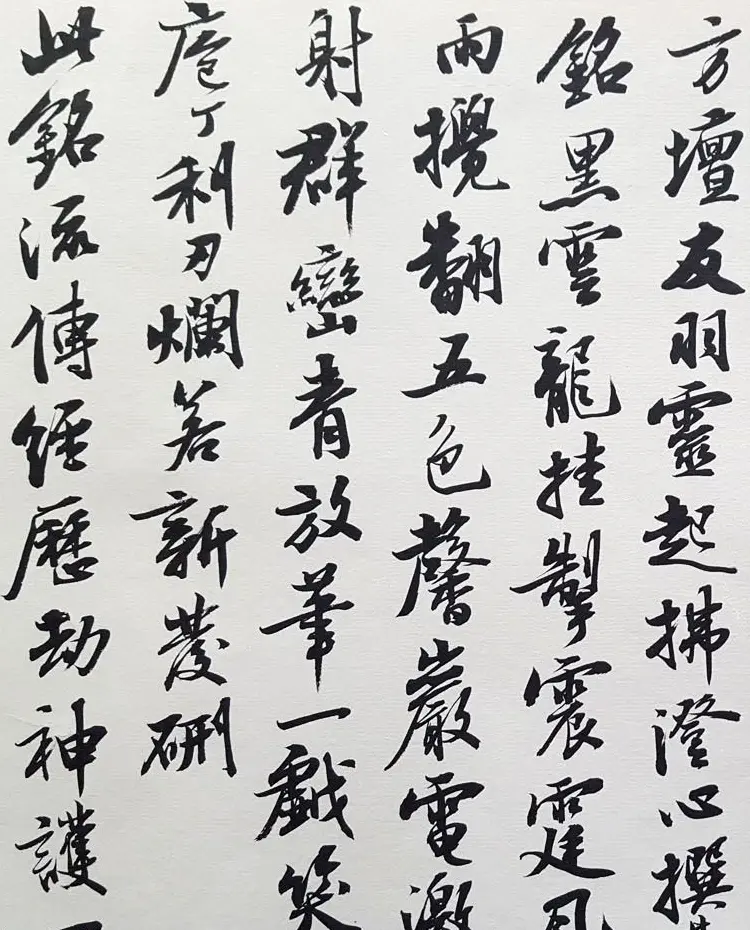 方壇友羽靈起拂澄心撰
銘黑雲龍挂掣震霆風
雨攪翻五色馨巖電激
射群巒青放筆一戲笑
庖丁利刃爛若新發硎
此銘流傳經歷劫神護